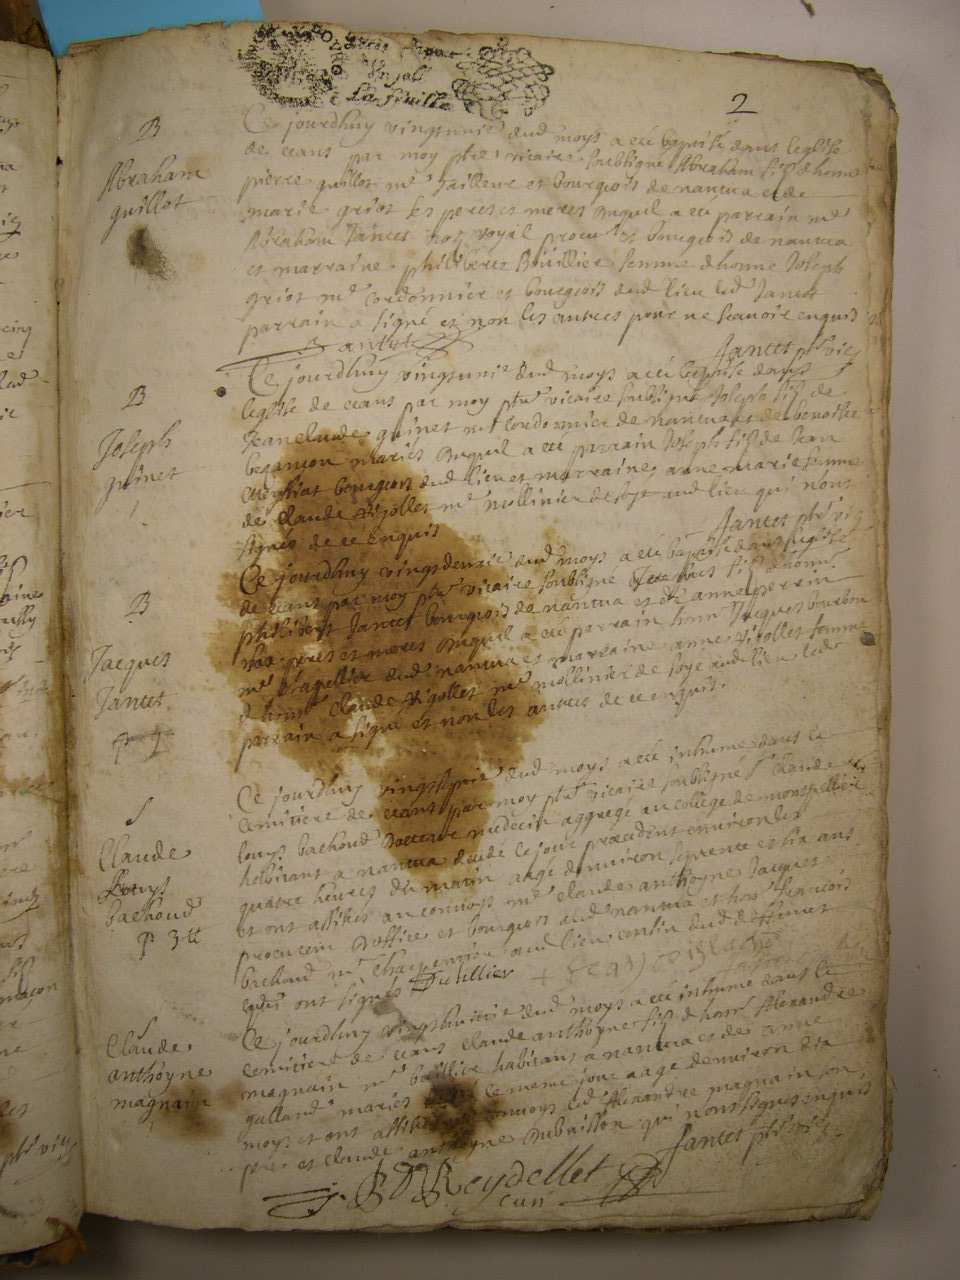 2
La feuille
B
Abraham
guillot
Ce jourdhuy vingtunie dud moys a eté baptisé dans leglise
de ceans par moy ptre vicaire soubsigné Abraham fils dhonne
pierre guillot me tailleur et bourgeois de nantua et de
marie griot ses peres et meres Auquel a eté parrain me
Abraham Jantet not royal procur et bourgeois de nantua
et marraine philiberte Bouillier femme dhonne Joseph
griot me Cordonnier et bourgeois dud lieu led Jantet
parrain a signé et non les autres pour ne scavoir enquis
Jantet ptre vic
B
Joseph
guinet
Ce jourdhuy vingtunie dud moys a eté baptisé dans
leglise de ceans par moy ptre vicaire soubsigné Joseph fils de
Jeanclaude guinet me Cordonnier de nantua et de benoiste
besançon mariés Auquel a eté parrain Joseph fils de Jean
bourgeois dud lieu et marraine anne marie femme
de Claude Rigollet me mollinier de soye aud lieu qui nont
signés de ce enquis
Jantet ptre vic
B
Jacques
Jantet
Ce jourdhuy vingtdeuxie dud moys a eté baptisé dans leglise
de ceans par moy ptre vicaire soubsigné Jacques fils dhonne
philibert Jantet bourgeois de nantua et de anne perrin
ses peres et meres Auquel a eté parrain honn Jacques bourbon
me Drapellier dud nantua et marraine anne Rigollet femme
d honn Claude Rigollet me mollinier de soye aud lieu led
parrain a signé et non les autres de ce enquis.
S
Claude
Louys
bachoud
P 3 ll
Ce jourdhuy dud moys a eté inhumé dans le
cemitiere de ceans par moy ptre vicaire soubsigné Sr Claude
louys bachoud Docteur medecin aggregé au college de montpellier
habitant a nantua decedé ce jour precedent environ les
quatre heures du matin aagé denviron septente et six ans
et ont assistes au convoys me claude anthoyne Jacquet
procureur Doffice et bourgeois dud nantua et honn françois
bachoud me Charpentier aud lieu cousin dud deffunct
ont signés Dutillier
S
Claude
anthoyne
magnain
Ce jourdhuy vingthuictie dud moys a eté inhumé dans le
cemitiere de ceans claude anthoyne fils dhonn Alexandre
magnain me habitant a nantua et de anne
galland mariés le meme jour aagé denviron six
moys et ont assistés au convoys led Alexandre magnain son
pere et claude anthoyne Dubuisson qui nont signés enquis
Jantet ptre vic
Reydellet
curé